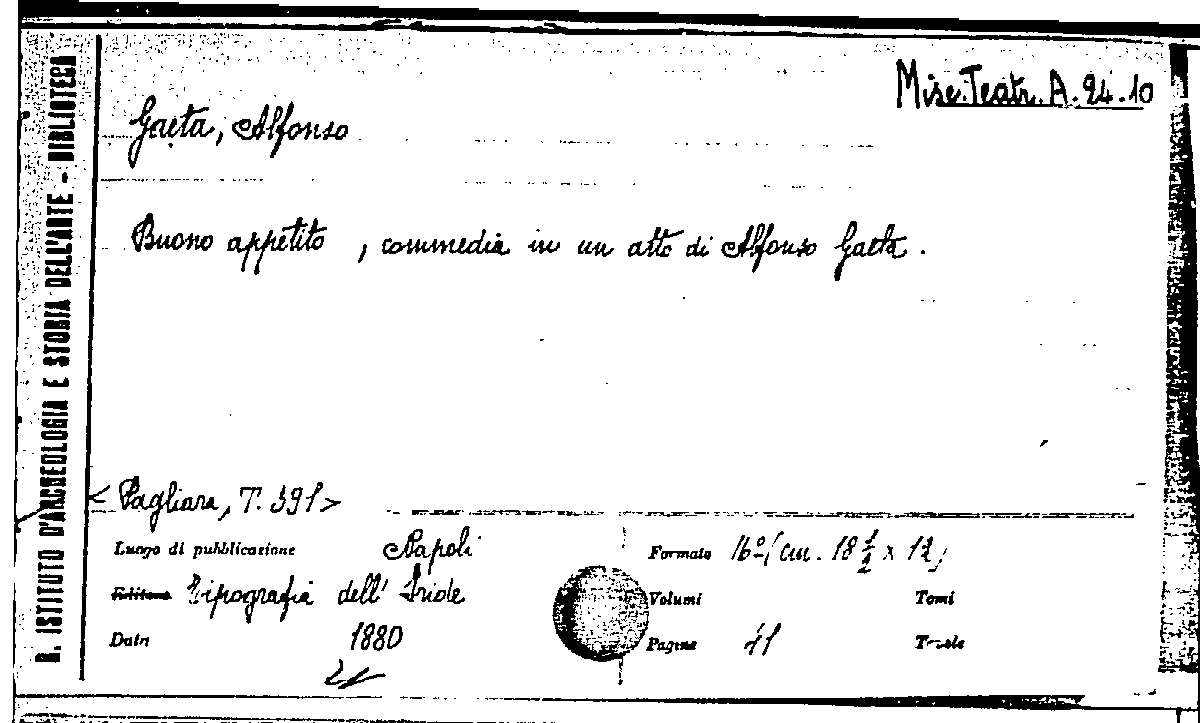 R. ISTITUTO D'ARCHEOLOGIA E STORIA DELL'ARTE - BIBLIOTECA
Misc. Teatr. A. 24.10
Gaeta, Alfonso
Buono appetito, commedia in un atto di Alfonso Gaeta.
<Pagliara, T. 391>
Luogo di pubblicazione Napoli
Editore Tipografia dell' Iride
Data 1880
Formato 16º (cm. 18 1/2 x 12)
Volumi Tomi
Pagine 41 Tavole